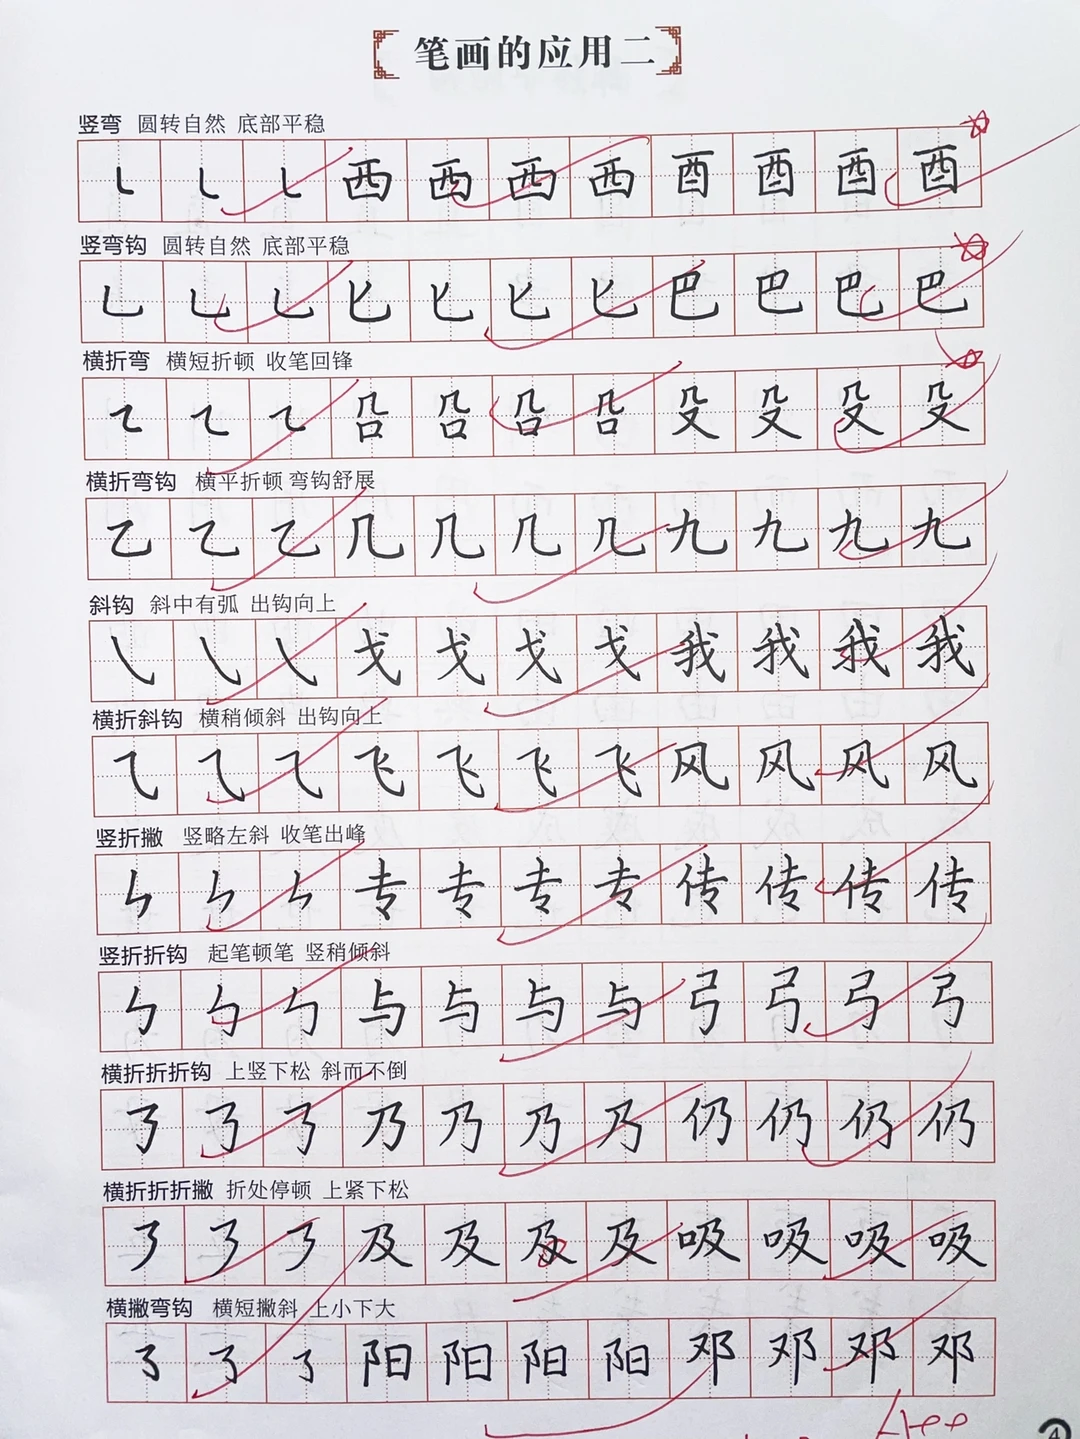 笔画的应用二
竖弯 圆转自然 底部平稳
㇄ ㇄ ㇄ 西 西 西 西 酉 酉 酉 酉
竖弯钩 圆转自然 底部平稳
乚 乚 乚 匕 匕 匕 匕 巴 巴 巴 巴
横折弯 横短折顿 收笔回锋
㇍ ㇍ ㇍ 㕣 㕣 㕣 㕣 殳 殳 殳 殳
横折弯钩 横平折顿 弯钩舒展
乙 乙 乙 几 几 几 几 九 九 九 九
斜钩 斜中有弧 出钩向上
㇂ ㇂ ㇂ 戈 戈 戈 戈 我 我 我 我
横折斜钩 横稍倾斜 出钩向上
⺄ ⺄ ⺄ 飞 飞 飞 飞 风 风 风 风
竖折撇 竖略左斜 收笔出峰
ㄣ ㄣ ㄣ 专 专 专 专 传 传 传 传
竖折折钩 起笔顿笔 竖稍倾斜
㇉ ㇉ ㇉ 与 与 与 与 弓 弓 弓 弓
横折折折钩 上竖下松 斜而不倒
㇡ ㇡ ㇡ 乃 乃 乃 乃 仍 仍 仍 仍
横折折折撇 折处停顿 上紧下松
㇋ ㇋ ㇋ 及 及 及 及 吸 吸 吸 吸
横撇弯钩 横短撇斜 上小下大
㇌ ㇌ ㇌ 阳 阳 阳 阳 邓 邓 邓 邓